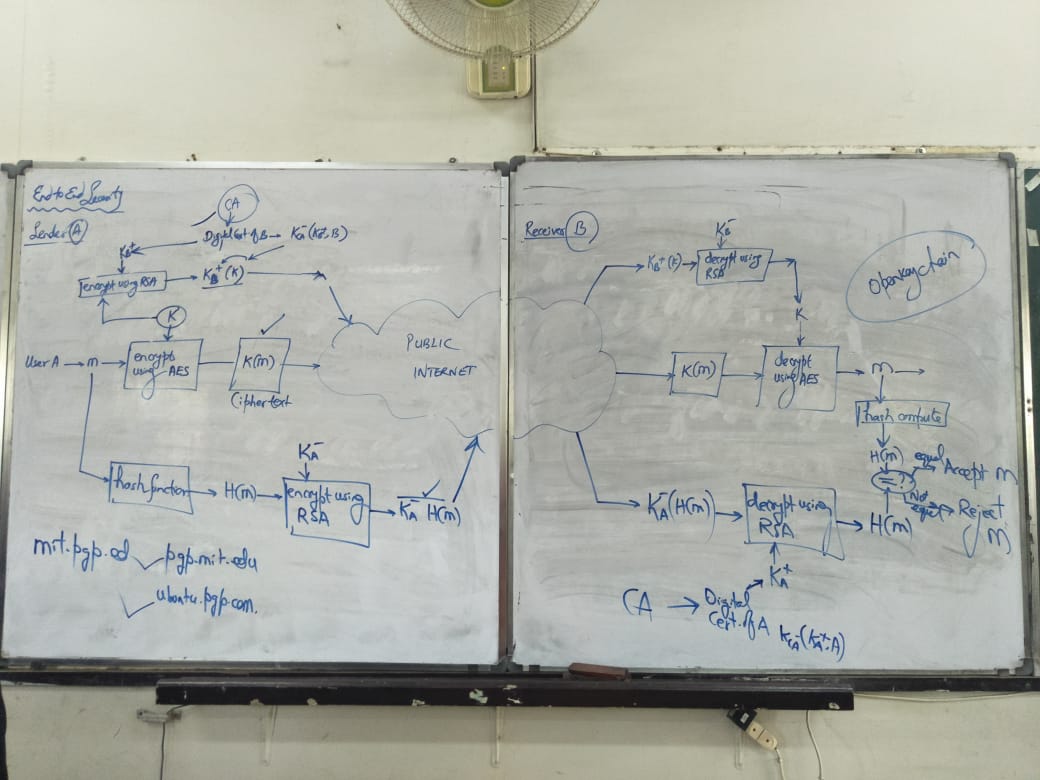 End to End Security
Sender A
CA
Digital Cert of B → K⁻CA(K⁺B, B)
K⁺B
encrypt using RSA
K⁺B(K)
K
User A → m
encrypt using AES
K(m)
Ciphertext
PUBLIC
INTERNET
K⁻A
hash function
H(m)
encrypt using
RSA
K⁻A H(m)
mit.pgp.ed
pgp.mit.edu
ubuntu.pgp.com.
Receiver B
K⁻B
K⁺B(K)
decrypt using
RSA
Openkeychain
K
K(m)
decrypt
using AES
m
hash compute
H(m)
= ?
equal
Accept m
Not
equal
Reject
m
K⁻A(H(m))
decrypt using
RSA
H(m)
K⁺A
CA → Digital
Cert. of A
K⁻CA(K⁺A, A)